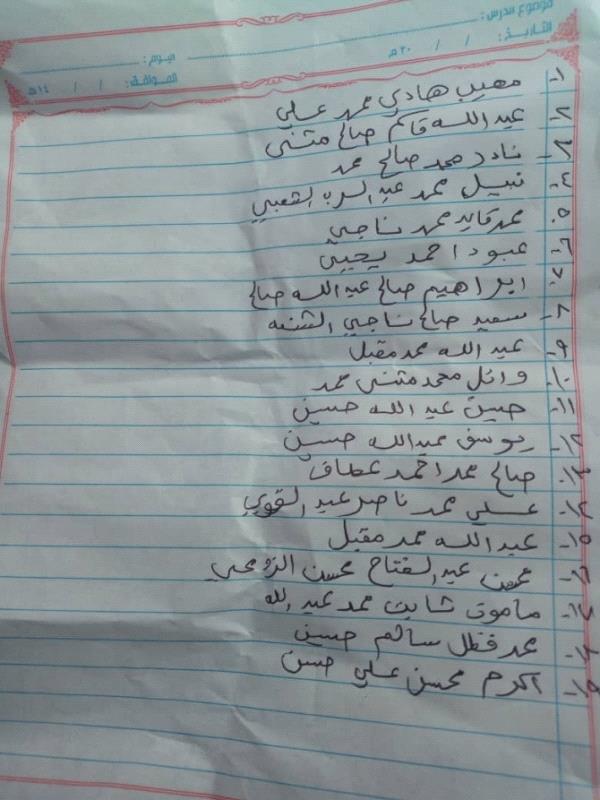 موضوع الدرس:
التاريخ: / / ٢٠م
اليوم:
الموافق: / / ١٤هـ
١- مهيب هادي محمد علي
٢- عبد الله قاسم صالح مثنى
٣- نادر محمد صالح محمد
٤- نبيل محمد عبد الرب الشعبي
٥- محمد عايد محمد ناجي
٦- عبود احمد يحيى
٧- ابراهيم صالح عبد الله صالح
٨- سعيد صالح ناجي
٩- عبد الله محمد مقبل
١٠- وائل محمد مثنى محمد
١١- حسين عبد الله حسين
١٢- يوسف عبد الله حسين
١٣- صالح محمد احمد عطاف
١٤- علي محمد ناصر عبد القوي
١٥- عبد الله محمد مقبل
١٦- محسن عبد الفتاح محسن
١٧- مأمون ثابت محمد عبد الله
١٨- محمد فضل سالم حسين
١٩- اكرم محسن علي حسن